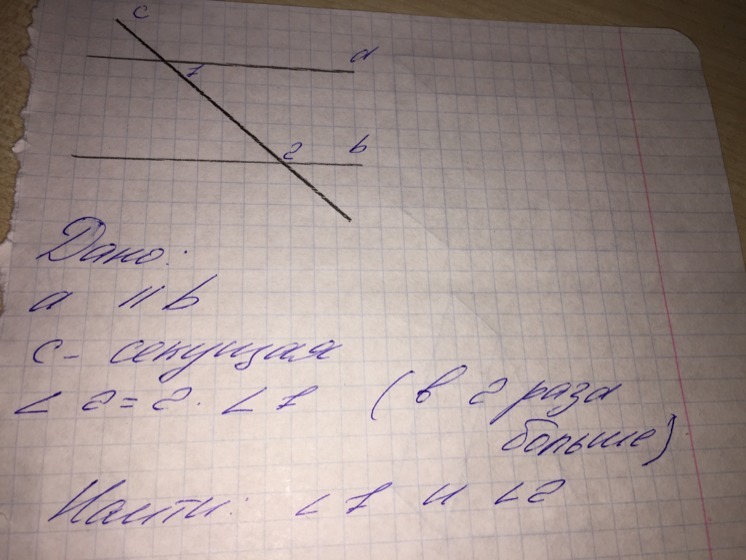 c
a
1
2
b
Дано:
a || b
c - секущая
∠ 2 = 2 · ∠ 1 (в 2 раза
больше)
Найти: ∠ 1 и ∠ 2